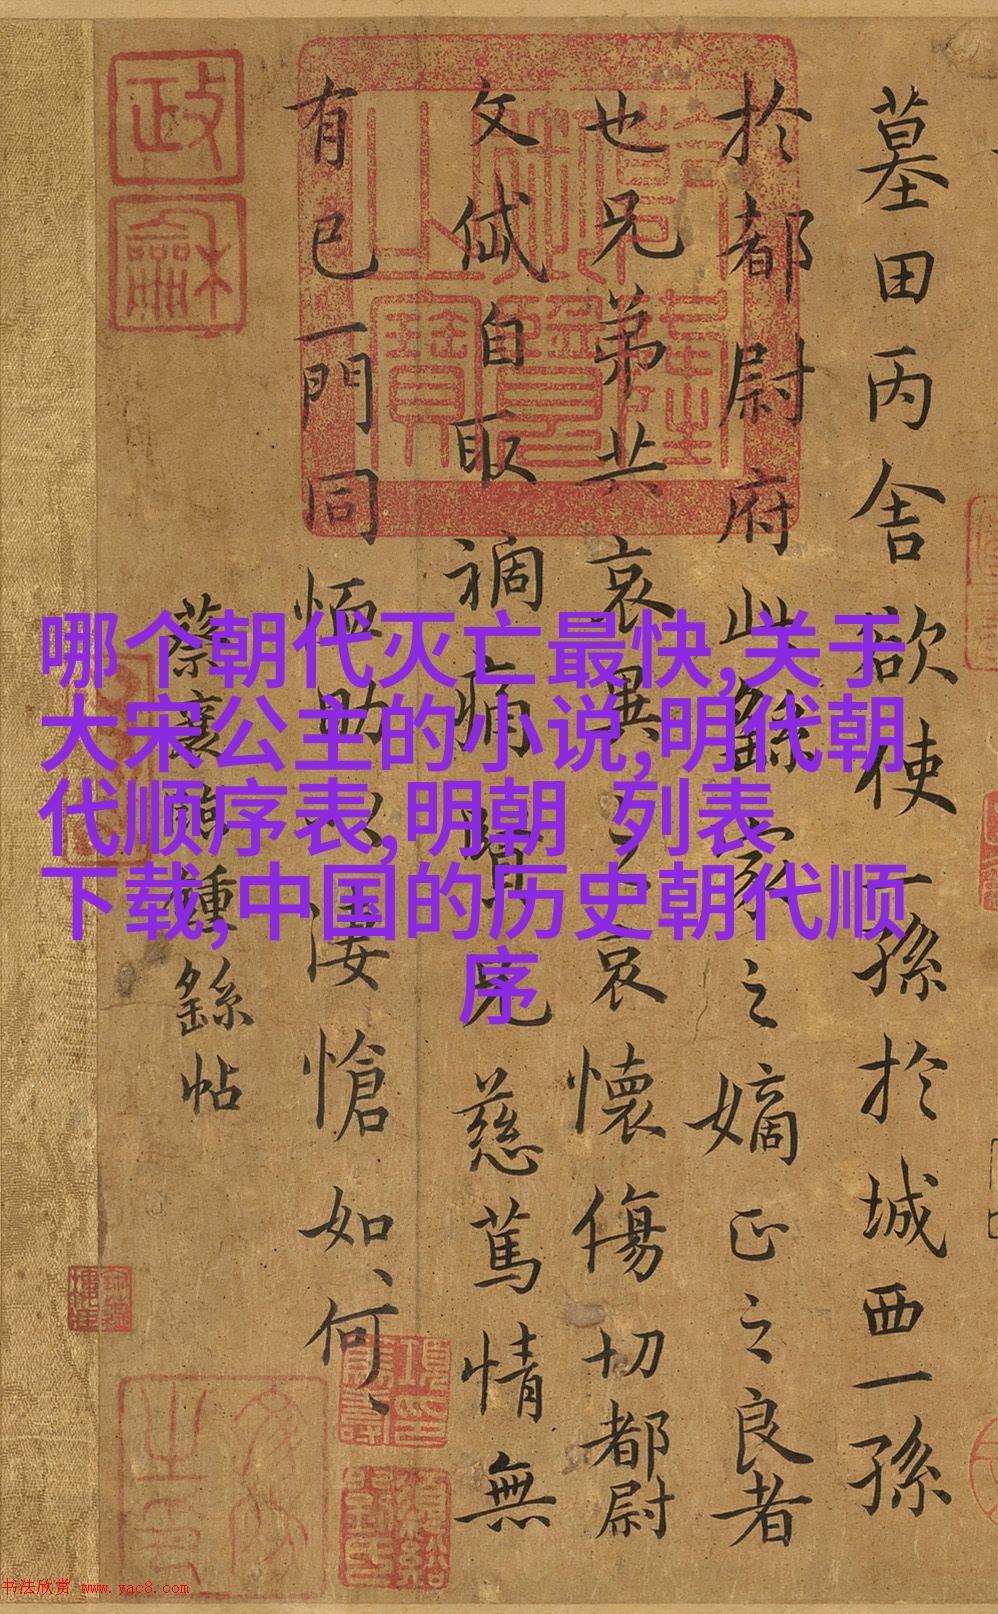 哪个朝代灭亡最快,关于
大宋公主的小说,明代朝
代顺序表,明朝 列表
下载,中国的历史朝代顺
序
墓田丙舍欲使一孫於城西一孫
於都尉府此繇家之嫡正之良者
也兄弟共哀異之哀懷傷切都尉
文自取禍痛賢兄慈篤情無
有已一門同恤助以悽愴如何、
蔡襄臨鍾繇帖
政
龢
书法欣赏 www.yac8.com